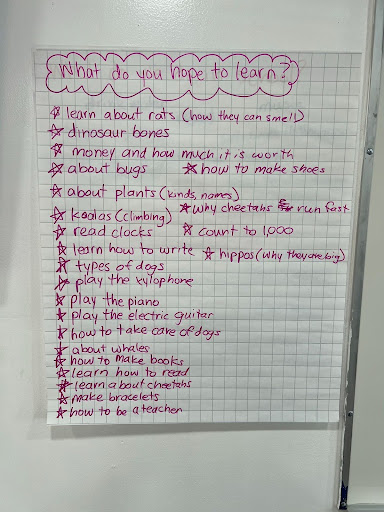 What do you hope to learn?
☆ learn about rats (how they can smell)
☆ dinosaur bones
☆ money and how much it is worth
☆ about bugs ☆ how to make shoes
☆ about plants (kinds, names)
☆ why cheetahs run fast
☆ koalas (climbing)
☆ read clocks ☆ count to 1,000
☆ learn how to write ☆ hippos (why they are big)
☆ types of dogs
☆ play the xylophone
☆ play the piano
☆ play the electric guitar
☆ how to take care of dogs
☆ about whales
☆ how to make books
☆ learn how to read
☆ learn about cheetahs
☆ make bracelets
☆ how to be a teacher